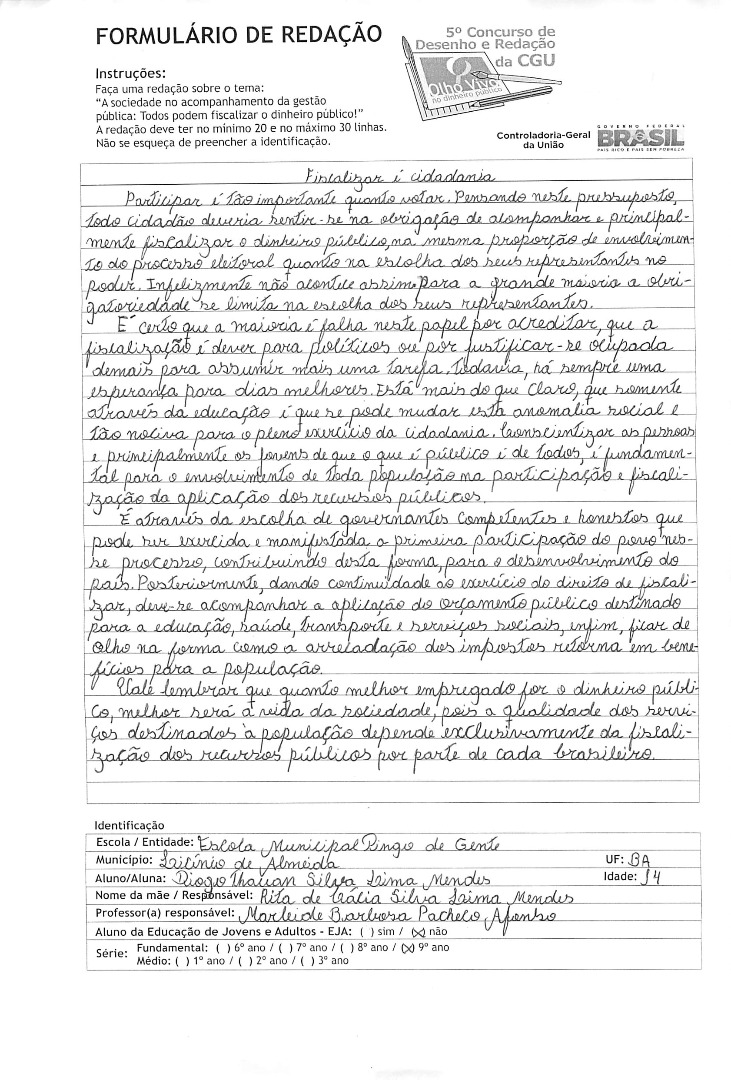 FORMULÁRIO DE REDAÇÃO
5º Concurso de
Desenho e Redação
da CGU
Olho Vivo
no dinheiro público
Instruções:
Faça uma redação sobre o tema:
“A sociedade no acompanhamento da gestão
pública: Todos podem fiscalizar o dinheiro público!”
A redação deve ter no mínimo 20 e no máximo 30 linhas.
Não se esqueça de preencher a identificação.
Controladoria-Geral
da União
GOVERNO FEDERAL
BRASIL
PAÍS RICO É PAÍS SEM POBREZA
Fiscalizar é cidadania
Participar é tão importante quanto votar. Pensando neste pressuposto,
todo cidadão deveria sentir-se na obrigação de acompanhar e principal-
mente fiscalizar o dinheiro público, na mesma proporção de envolvimen-
to do processo eleitoral quanto na escolha dos seus representantes no
poder. Infelizmente não acontece assim. Para a grande maioria a obri-
gatoriedade se limita na escolha dos seus representantes.
É certo que a maioria é falha neste papel por acreditar, que a
fiscalização é dever para políticos ou por justificar-se ocupada
demais para assumir mais uma tarefa. Todavia, há sempre uma
esperança para dias melhores. Está mais do que claro, que somente
através da educação é que se pode mudar esta anomalia social e
tão nociva para o pleno exercício da cidadania. Conscientizar as pessoas
e principalmente os jovens de que o que é público é de todos, é fundamen-
tal para o envolvimento de toda população na participação e fiscali-
zação da aplicação dos recursos públicos.
É através da escolha de governantes competentes e honestos que
pode ser exercida e manifestada a primeira participação do povo nes-
se processo, contribuindo desta forma, para o desenvolvimento do
país. Posteriormente, dando continuidade ao exercício do direito de fiscali-
zar, deve-se acompanhar a aplicação do orçamento público destinado
para a educação, saúde, transporte e serviços sociais, enfim, ficar de
olho na forma como a arrecadação dos impostos retorna em bene-
fícios para a população.
Vale lembrar que quanto melhor empregado for o dinheiro públi-
co, melhor será a vida da sociedade, pois a qualidade dos servi-
ços destinados à população depende exclusivamente da fiscali-
zação dos recursos públicos por parte de cada brasileiro.
Identificação
Escola / Entidade: Escola Municipal Pingo de Gente
Município: Licínio de Almeida UF: BA
Aluno/Aluna: Diogo Thauan Silva Lima Mendes Idade: 14
Nome da mãe / Responsável: Rita de Cácia Silva Lima Mendes
Professor(a) responsável: Marleide Barbosa Pacheco Afonso
Aluno da Educação de Jovens e Adultos - EJA: ( ) sim / (x) não
Série: Fundamental: ( ) 6º ano / ( ) 7º ano / ( ) 8º ano / (x) 9º ano
Médio: ( ) 1º ano / ( ) 2º ano / ( ) 3º ano